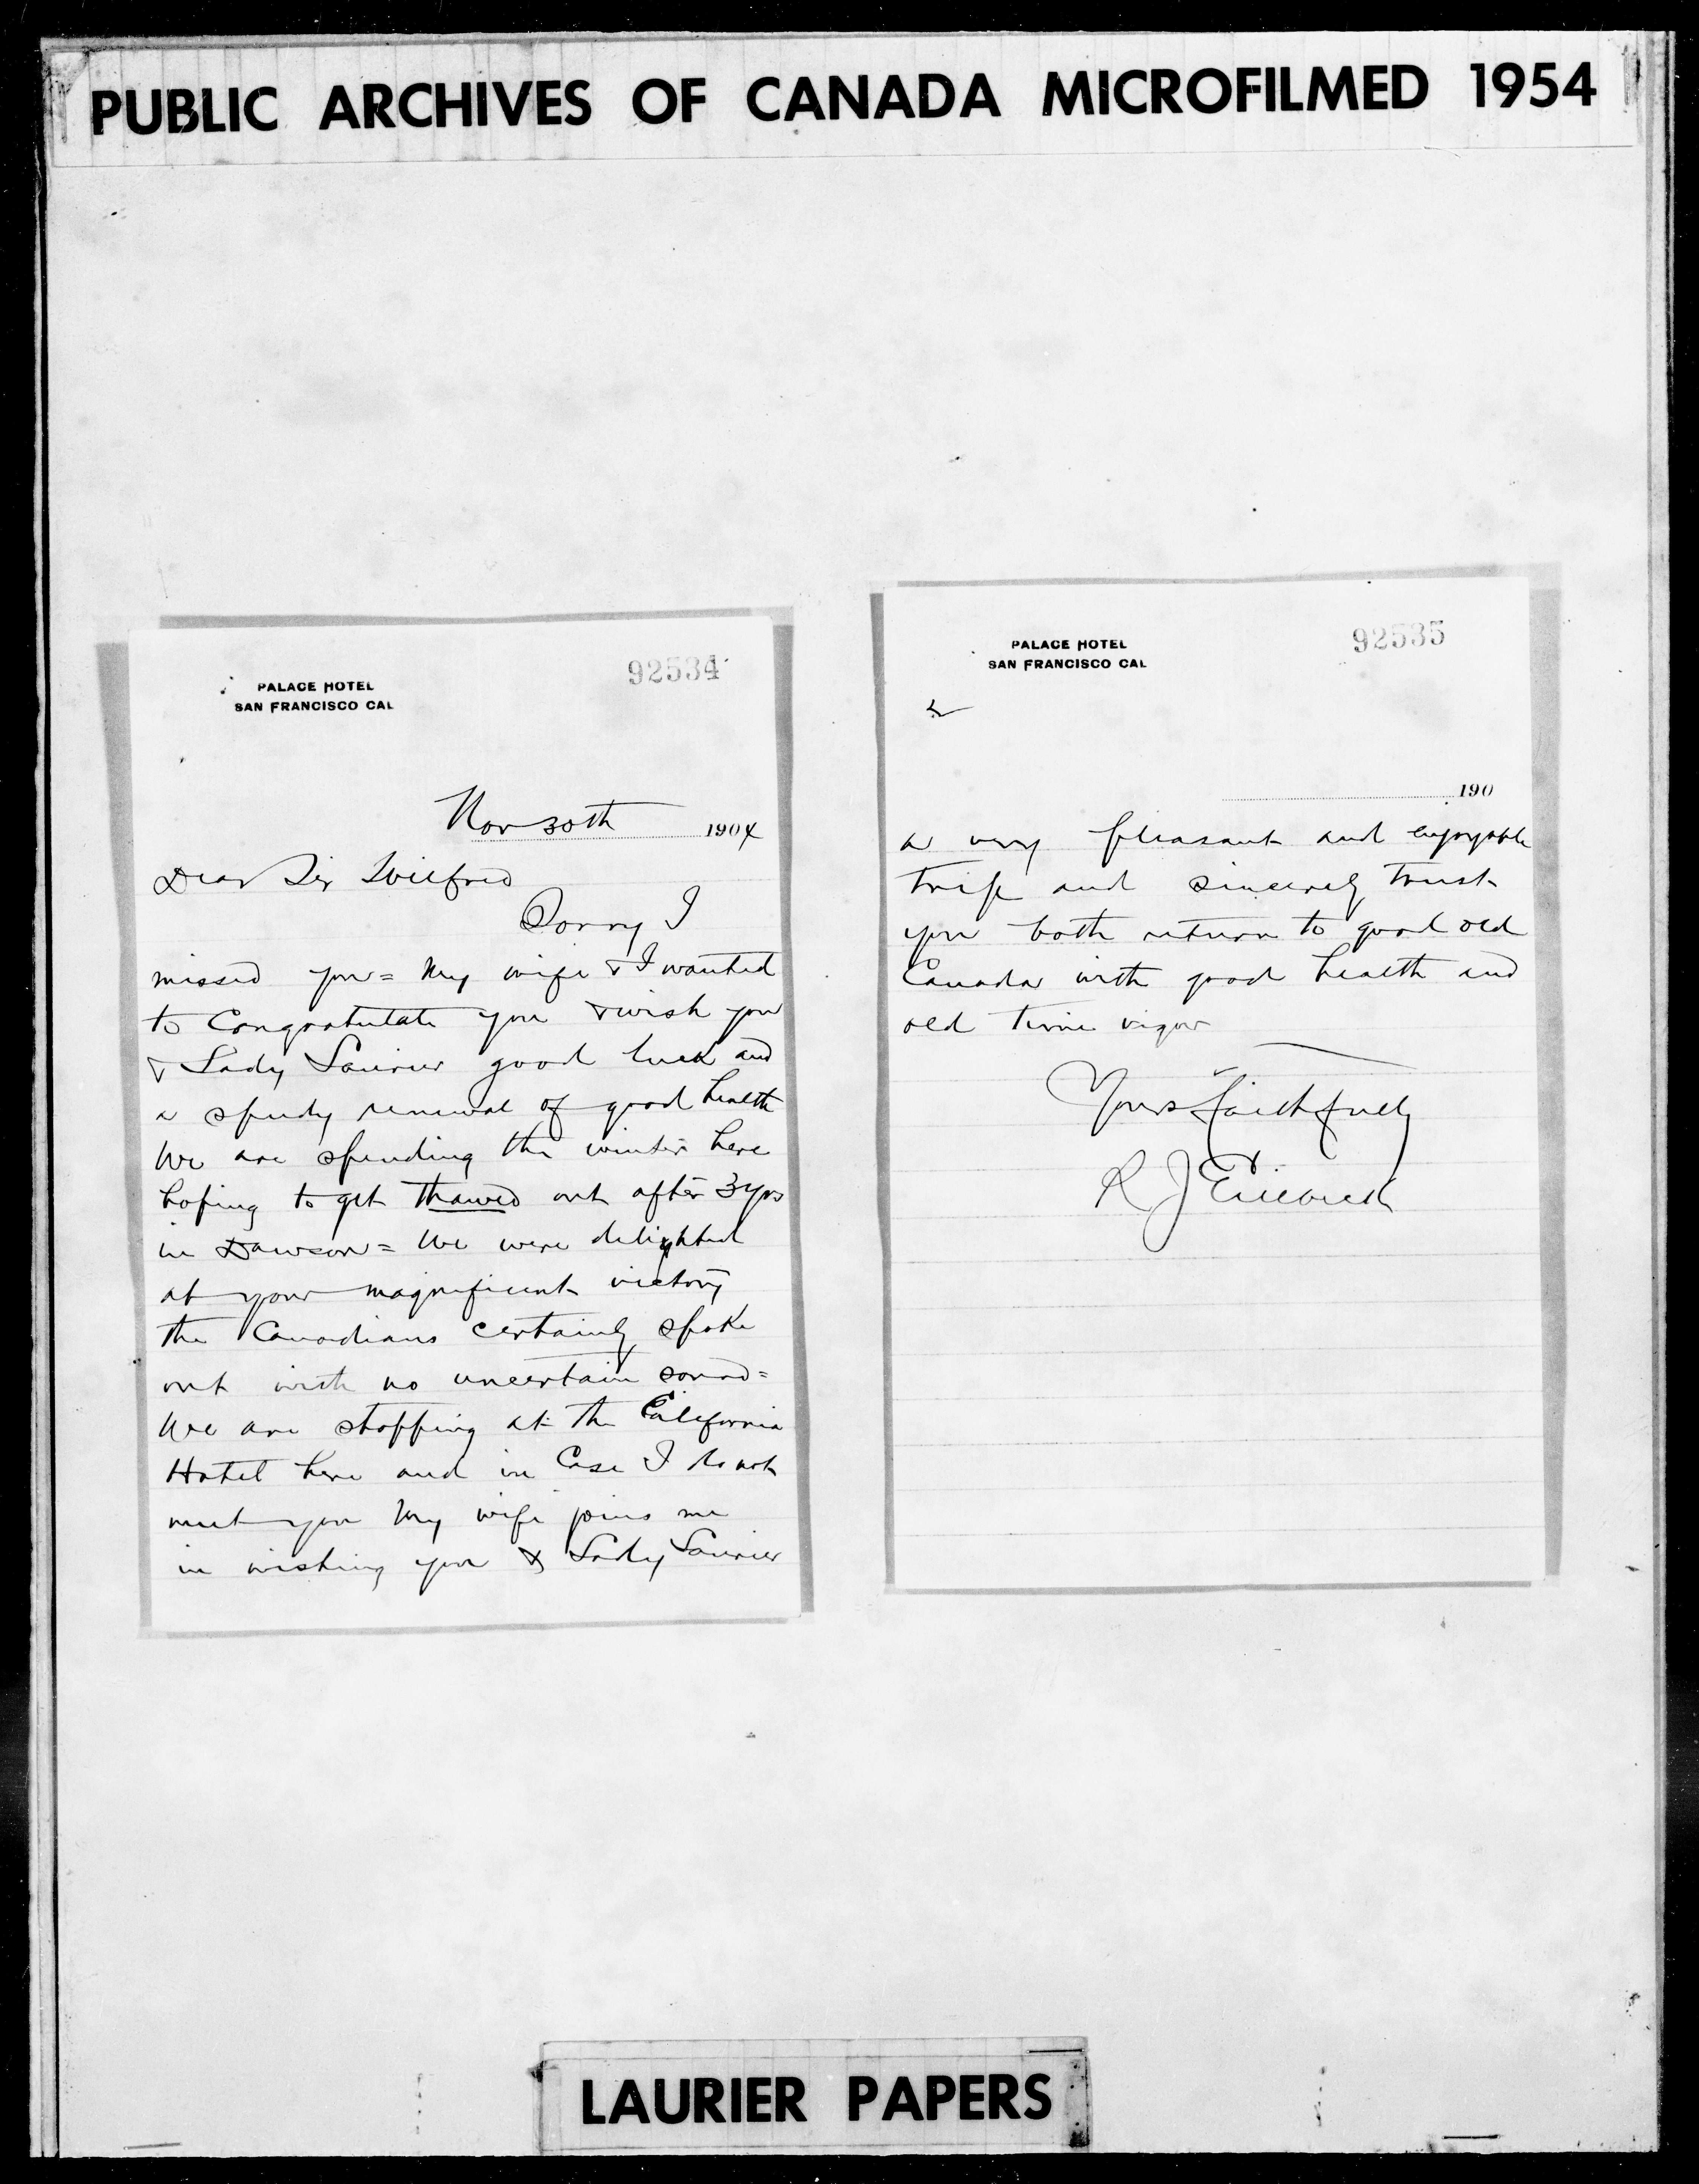 PUBLIC ARCHIVES OF CANADA MICROFILMED 1954
92534
PALACE HOTEL
SAN FRANCISCO CAL
Nov 30th 1904
Dear Sir Wilfred
Sorry I
missed you = My wife & I wanted
to Congratulate you & wish you
& Lady Laurier good luck and
a speedy renewal of good health
We are spending the winter here
hoping to get thawed out after 3 yrs
in Dawson = We were delighted
at your magnificent victory
the Canadians certainly spoke
out with no uncertain sound =
We are stopping at the California
Hotel here and in Case I do not
meet you My wife joins me
in wishing you & Lady Laurier
92535
PALACE HOTEL
SAN FRANCISCO CAL
2
190
a very pleasant and enjoyable
trip and sincerely trust
you both return to good old
Canada with good health and
old time vigor
Yours faithfully
R J
LAURIER PAPERS